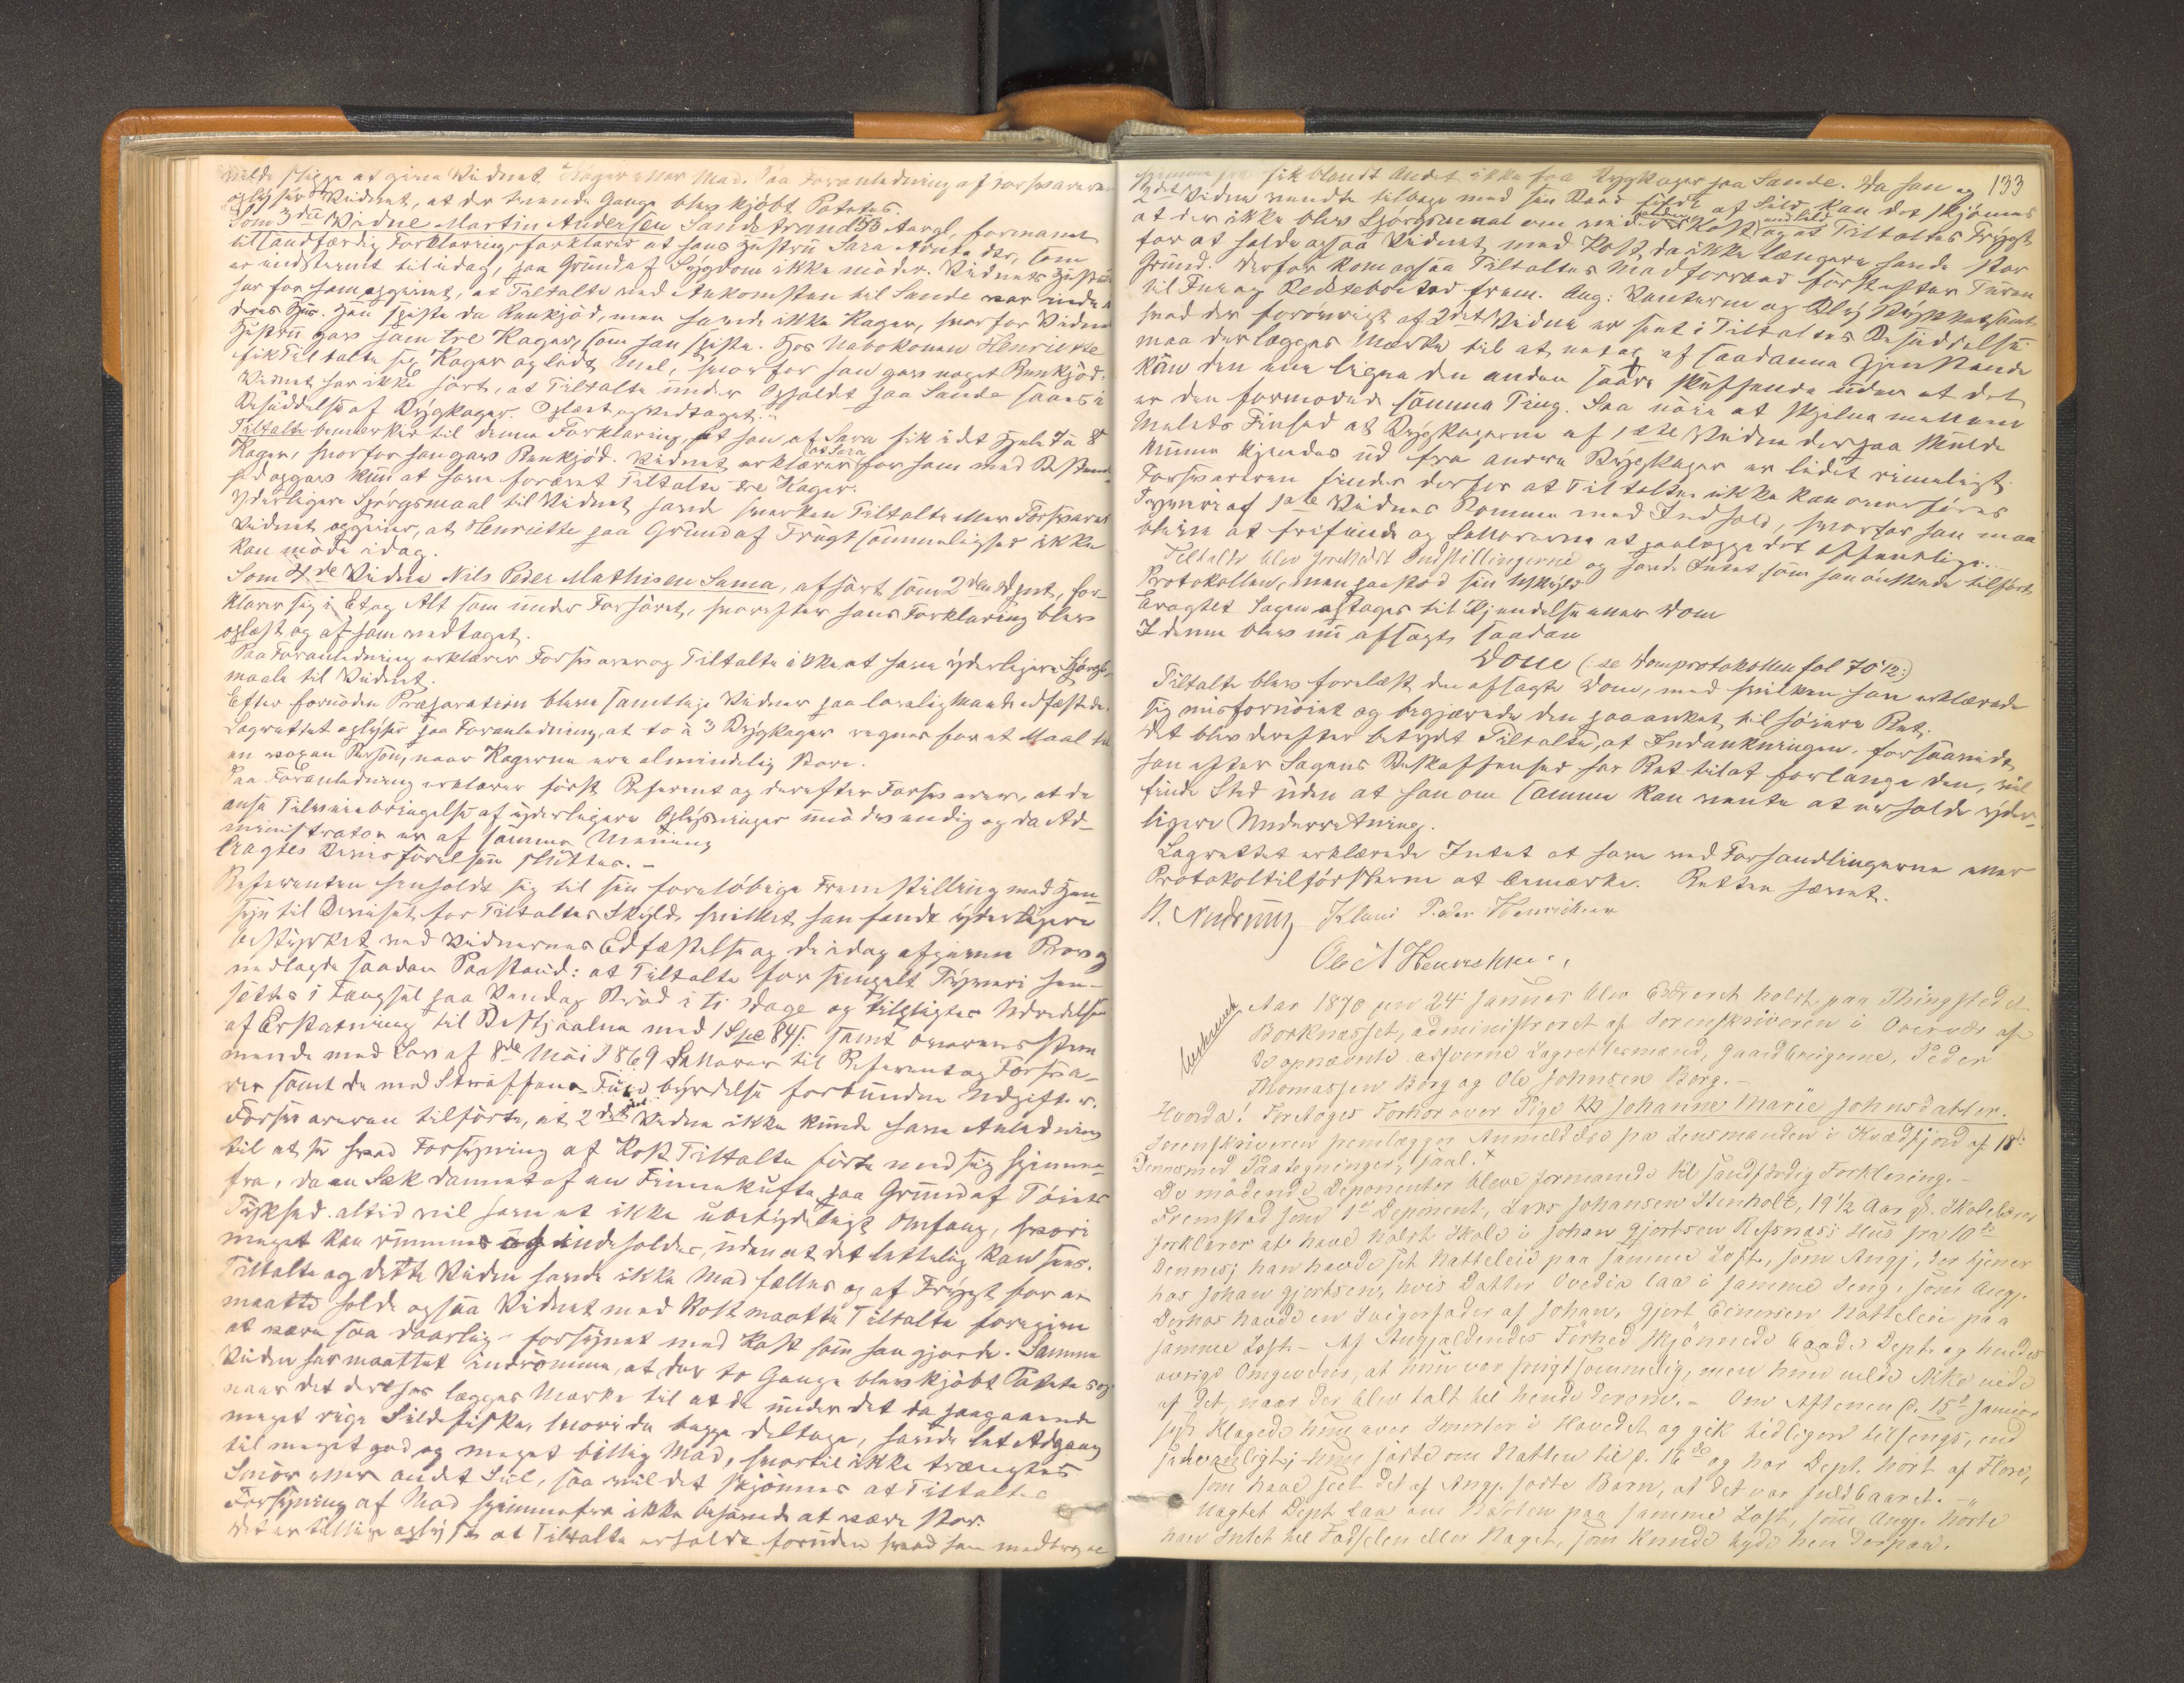 vilde skjøge at give Vidnet Kager eller Mad. Paa Foranledning af Forsvareren
oplyser Vidnet, at der trende Gange blev kjøbt Potetes.
Som 3die Vidne Martin Andersen Sandstrand 53 Aargl., formanet
til sandfærdig Forklaring, forklarer at hans Hustru Sara Arntsdtr, som
er indstevnt til idag, paa Grund af Sygdom ikke møder. Vidnets Hustru
har for ham opgivet, at Tiltalte ved Ankomsten til Sande var inde i
deres Hus. Han spiste da Renkjød, men havde ikke Kager, hvorfor Vidnets
Hustru gav ham tre Kager, som han spiste. Hos Nabokonen Henriette
fik Tiltalte sig Kager og lidt Mel, hvorfor han gav noget Renkjød.
Vidnet har ikke hørt, at Tiltalte under Opholdet paa Sande saaes i
Besiddelse af Rygkager. Oplæst, vedtaget.
Tiltalte bemerker til denne Forklaring, at han af Sara fik i det Hele 7 a 8
Kager, hvorfor han gav Renkjød. Vidnet erklærer at Sara for ham med Bestemt-
hed opgav kun at have foræret Tiltalte tre Kager.
Yderligere Spørgsmaal til Vidnet havde hverken Tiltalte eller Forsvarer
Vidnet opgiver, at Henriette paa Grund af Frugtsommelighed ikke
kan møde idag.
Som 4de Vidne Nils Peder Mathisen Sama, afhørt som 2den Dpnt, for-
klarer sig i Et og Alt som under Forhøret, hvorefter hans Forklaring blev
oplæst og af ham vedtaget.
Paa Foranledning erklærer Forsvarer og Tiltalte ikke at have yderligere Spørgs-
maale til Vidnet.
Efter fornøden Præparation bleve samtlige Vidner paa lovlig Maade edfæstede.
Lagrettet oplyser paa Foranledning, at to à 3 Rygkager regnes for et Maal til
en voxen Person, naar Kagerne ere almindelig store.
Paa Foranledning erklærer først Referent og derefter Forsvarer, at de
anse Tilveiebringelse af yderligere Oplysninger unødvendig og da Ad-
ministrator er af samme Mening
eragtes Bevisførelsen sluttet. –
Referenten henholdt sig til sin foreløbige Fremstilling med Hen-
syn til Beviset for Tiltaltes Skyld, hvilket han fandt yderligere
bestyrket ved Vidnernes Edfæstelse og de idag afgivne Prov og
nedlagde saadan Paastand: at Tiltalte for simpelt Tyveri hen-
sættes i Fængsel paa Vand og Brød i ti Dage og tilpligtes Udredelsen
af Erstatning til Bestjaalne med 1 Spd 84 s: samt overensstem
mende med Lov af 8de Mai 1869 Salærer til Referent og Forsva-
rer samt de med Straffens Fuldbyrdelse forbundne Udgifter.
Forsvareren tilførte, at 2det Vidne ikke kunde have Anledning
til at se hvad Forsyning af Kost Tiltalte førte med sig hjemme-
fra, da en Sæk dannet af en Finnekufte paa Grund af Tøiets
Tykhed altid vil have et ikke ubetydeligt Omfang, hvori
meget kan rummes og indeholdes, uden at det lettelig kan sees.
Tiltalte og dette Vidne havde ikke Mad fælles og af Frygt for at
maatte holde ogsaa Vidnet med Kost maatte Tiltalte foregive
at være saa daarlig forsynet med Kost som han gjorde. Samme
Vidne har maattet indrømme, at der to Gange blev kjøbt Potetes og
naar det derhos lægges Mærke til at de under det da foregaaende
meget rige Sildefiske, hvori de begge deltoge, havde let Adgang
til meget god og meget billig Mad, hvortil ikke trængtes
Smør eller andet Sul, saa vil det skjønnes at Tiltaltes
Forsyning af Mad hjemmefra ikke behøvede at være stor.
Det er tillige oplyst at Tiltalte erholdt foruden hvad han medbragte
133
hjemme fra fik blandt Andet ikke faa Rygkager paa Sande. Da han og
2det Vidne vendte tilbage med sin Baad fuld af Sild kan det skjønnes
at der ikke blev Spørgsmaal om videre Kost og at Tiltaltes Frygt
for at holde ogsaa Vidnet med Kost, da ikke længere havde stor
Grund. Derfor kom ogsaa Tiltaltes Madforraad først efter Turen
til Fue og Redstebotved frem. Ang: Vanterne og Blyhuset samt
hvad der forøvrigt af 2det Vidne er seet i Tiltaltes Besiddelse
maa der lægges Mærke til at netop af saadanne Gjenstande
kan den ene ligne den anden saare skuffende uden at det
er den formodede samme Ting. Saa nøie at skjelne mellem
Melets Finhed at Rygkagerne af 1ste Vidne derpaa skulde
kunne kjendes ud fra andre Rygkager er lidet rimeligt.
Forsvareren finder derfor at Tiltalte ikke kan overføres
Tyveri af 1ste Vidnes Komme med Indhold, hvorfor han maa
blive at frifinde og Salærerne at paalægge det Offentlige.
Tiltalte blev foreholdt Indstillingerne og havde Intet som han ønskede tilført
Protokollen, men paastod sin Uskyld
Eragtet Sagen optages til Kjendelse eller Dom
I denne blev nu afsagt saadan
Dom (: se Domprotokollen fol 70 1/2:)
Tiltalte blev forelæst den afsagte Dom, med hvilken han erklærede
sig misfornøiet og begjærede den paaanket til høiere Ret.
Det blev derefter betydet Tiltalte, at Indankningen, forsaavidt
han efter Sagens Beskaffenhed har Ret til at forlange den, vil
finde Sted uden at han om samme kan vente at erholde yder-
ligere Underretning.
Lagrettet erklærede Intet at have ved Forhandlingerne eller
Protokoltilførslerne at bemærke. Retten hævet.
N. Klaus Peder Henriksen
Ole A Henriksen
Aar 1870 den 24: Januar blev Extraret holdt paa Thingstedet
Borknæsset, administreret af Sorenskriveren i Overvær af
De opnævnte edsvorne Lagrettesmænd, Gaardbrugerne, Peder
Thomassen Borg og Ole Johnsen Borg. –
Hvorda! Foretoges Forhør over Pige Johanne Marie Johnsdatter.
Sorenskriveren fremlægger Anmeldelse fra Lensmanden i Kvædfjord af 18de
Dennes med Paategninger, saal.
De mødende Deponenter bleve formanede til sandfærdig Forklaring. –
Fremstod som 1ste Deponent, Lars Johansen Stenholt, 19 1/2 Aar gl. Skolelærer
forklarer at have holdt Skole i Johan Gjertsen Refsnæs's Hus fra 10de
Dennes; han havde sit Natteleie paa samme Loft, som Angj., der tjener
hos Johan Gjertsen, hvis Datter Ovedia laa i samme Seng, som Angj.
Derhos havde en Svigerfader af Johan, Gjert Einersen Natteleie paa
samme Loft. – Af Angjældendes Førhed skjønnede baade Dept. og hendes
øvrige Omgivelser, at hun var frugtsommelig, men hun vilde ikke vide
af det, naar der blev talt til hende derom. – Om Aftenen d. 15de Januar
sidst klagede hun over Smerter i Hovedet og gik tidligere tilsengs, end
sædvanligt; hun fødte om Natten til d. 16de og har Dept. hørt af Flere,
som have seet det af Angj. fødte Barn, at det var fuldbaaret. –
Uagtet Dept. laa om Natten paa samme Loft, som Angj. hørte
han Intet til Fødselen eller Noget, som kunde tyde hen derpaa.